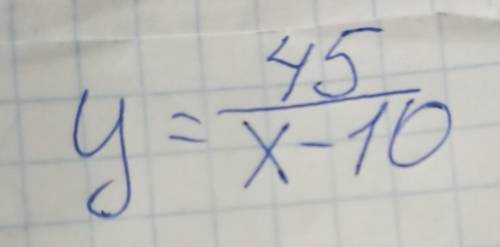 y = 45/(x-10)